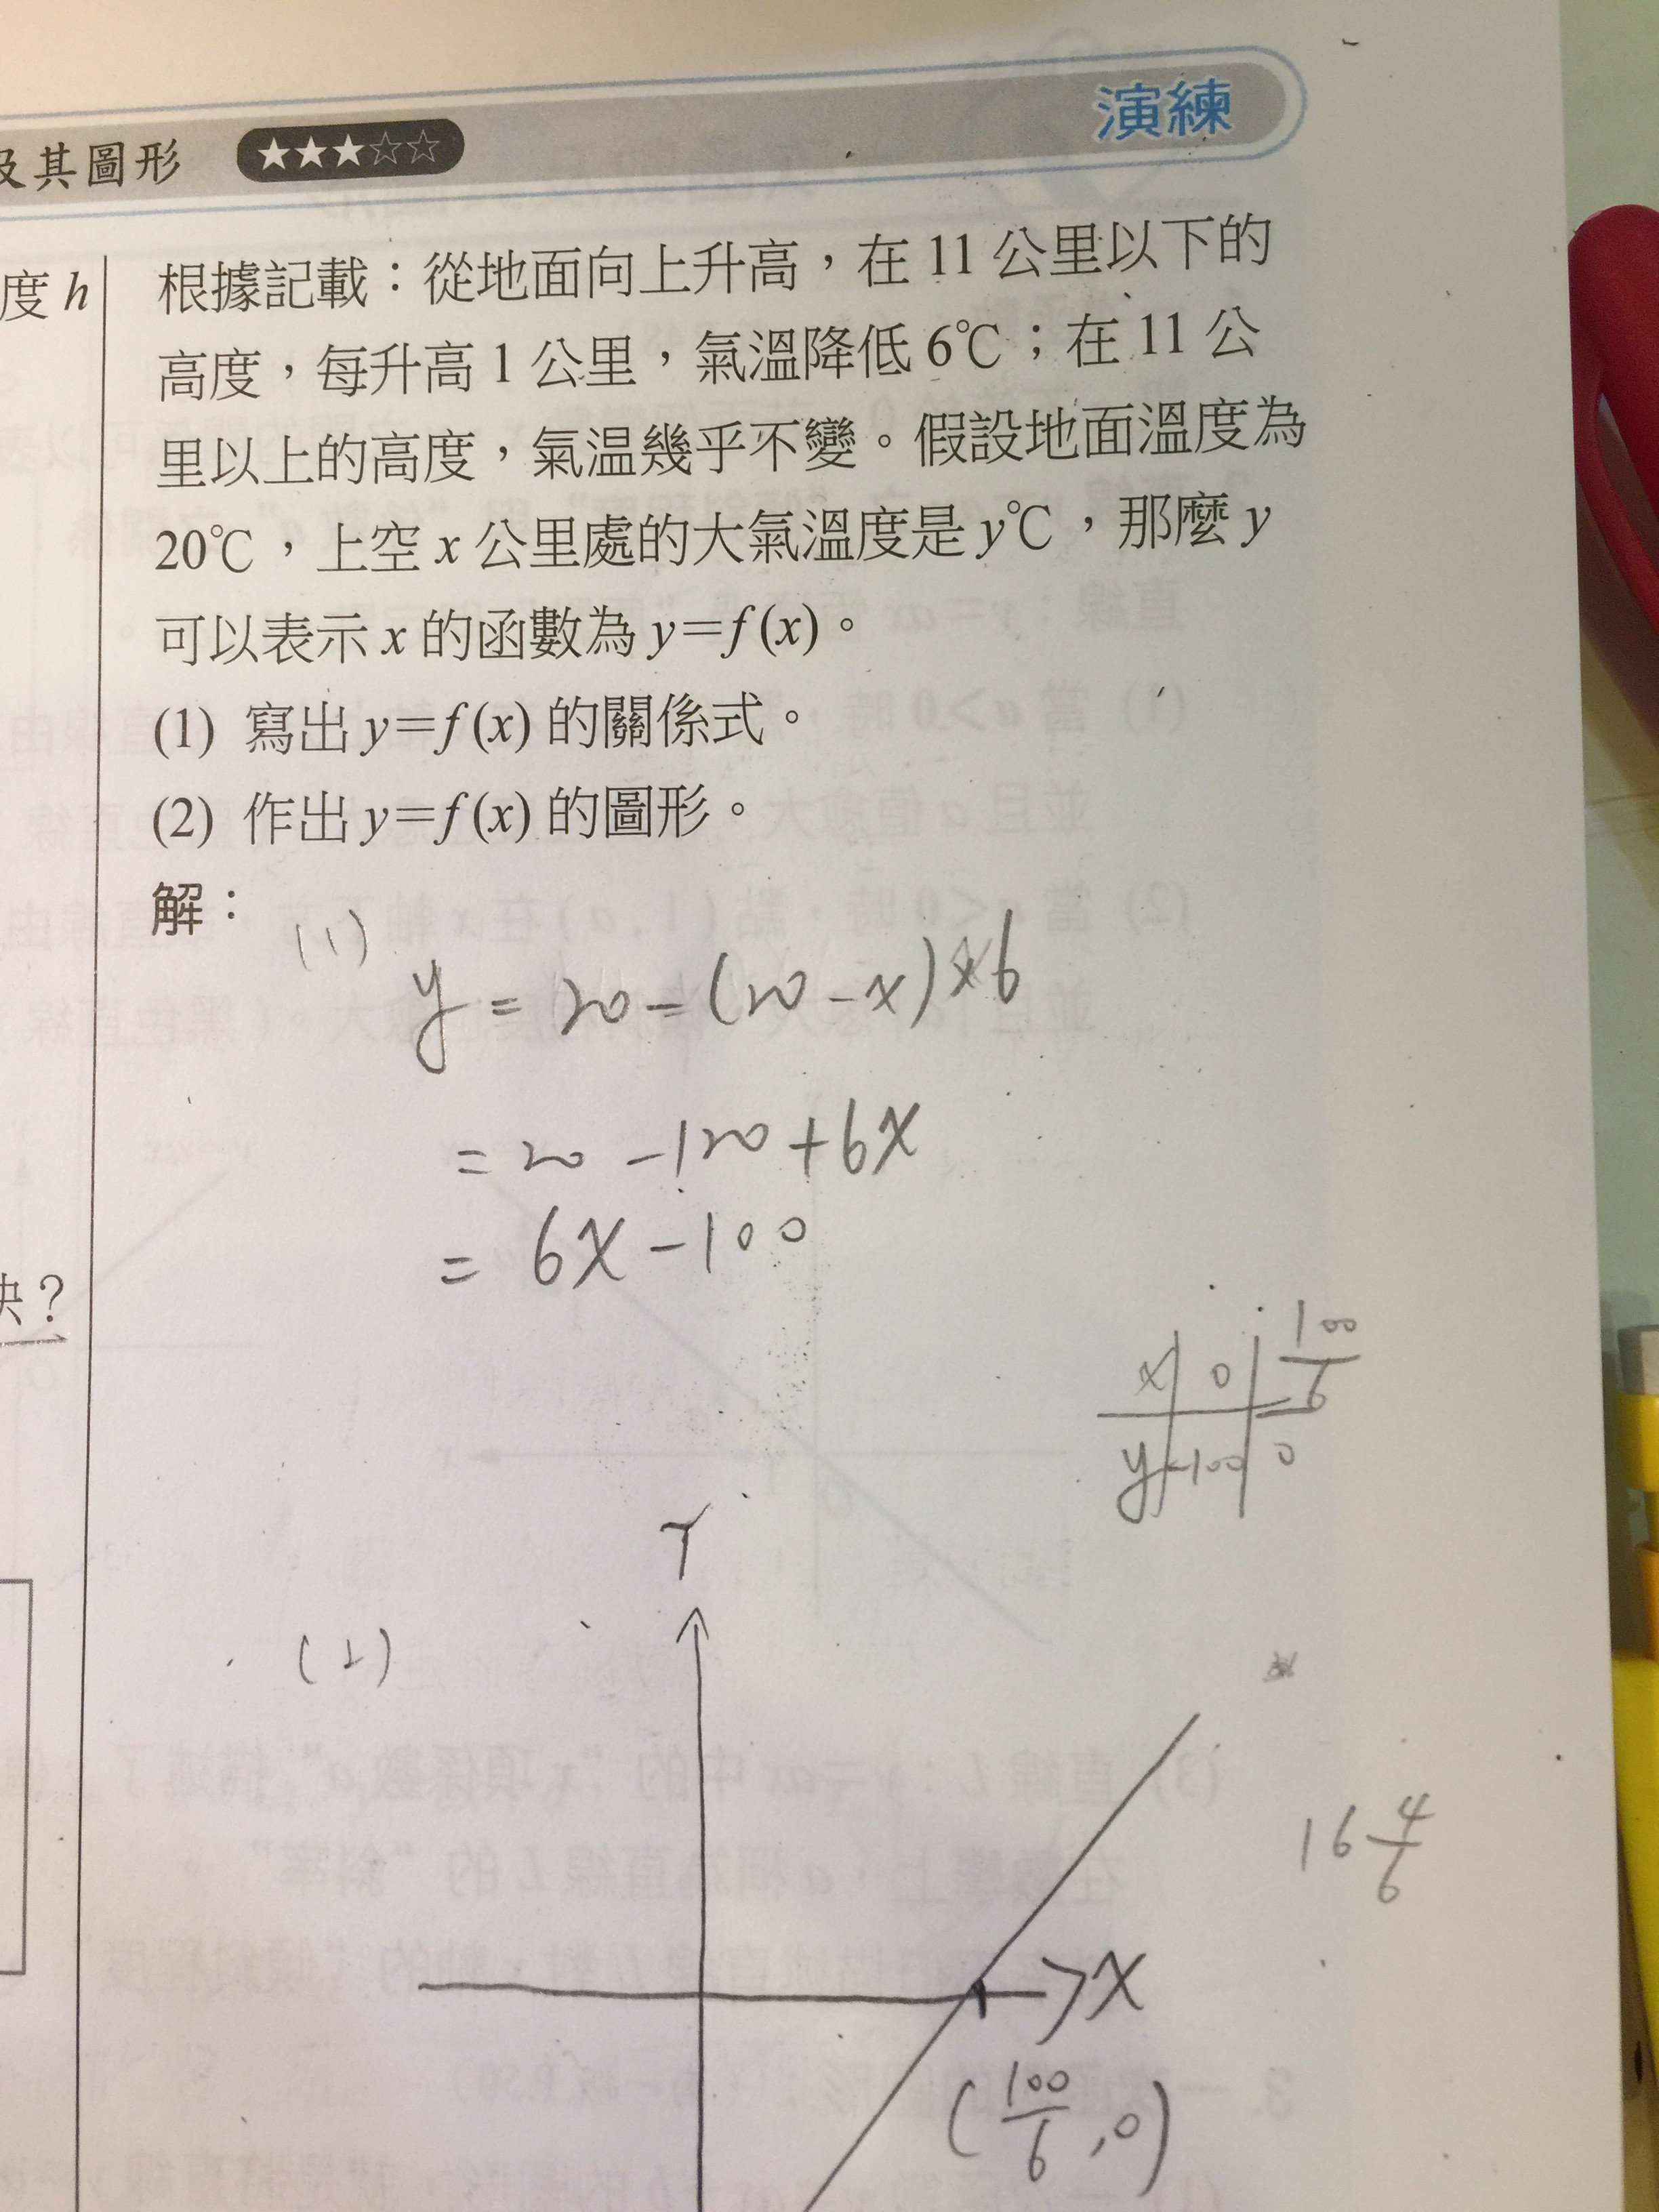 及其圖形 ★★★☆☆ 演練
度 h
根據記載：從地面向上升高，在 11 公里以下的
高度，每升高 1 公里，氣溫降低 6℃；在 11 公
里以上的高度，氣温幾乎不變。假設地面溫度為
20℃，上空 x 公里處的大氣溫度是 y℃，那麼 y
可以表示 x 的函數為 y=f(x)。
(1) 寫出 y=f(x) 的關係式。
(2) 作出 y=f(x) 的圖形。
解：
(1) y = 20 - (20 - x) × 6
= 20 - 120 + 6x
= 6x - 100
快？
x 0 100/6
y -100 0
Y
(2)
16 4/6
X
(100/6, 0)